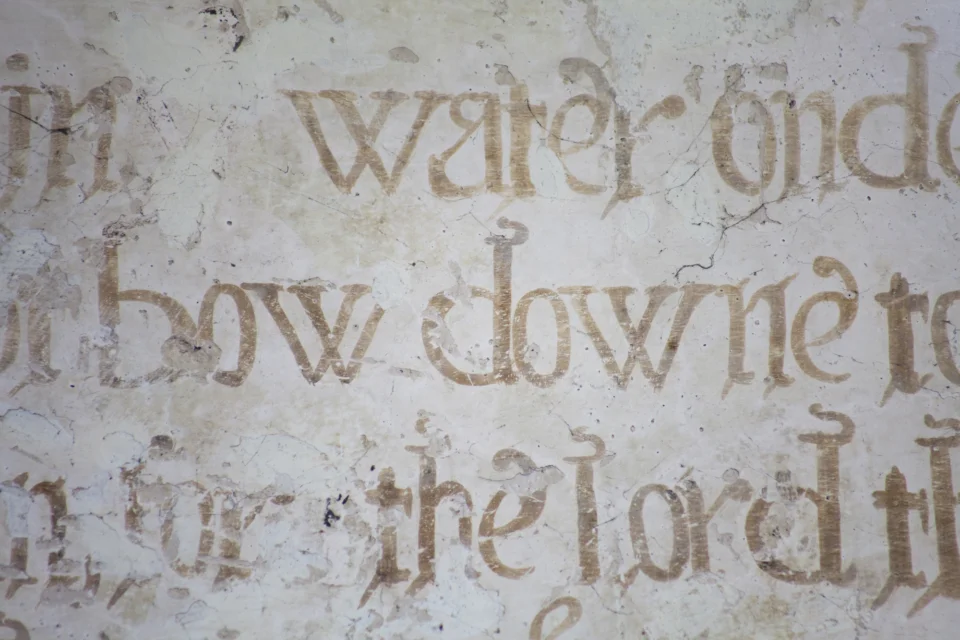 in water vnde
t bow downe to
m for the lord th